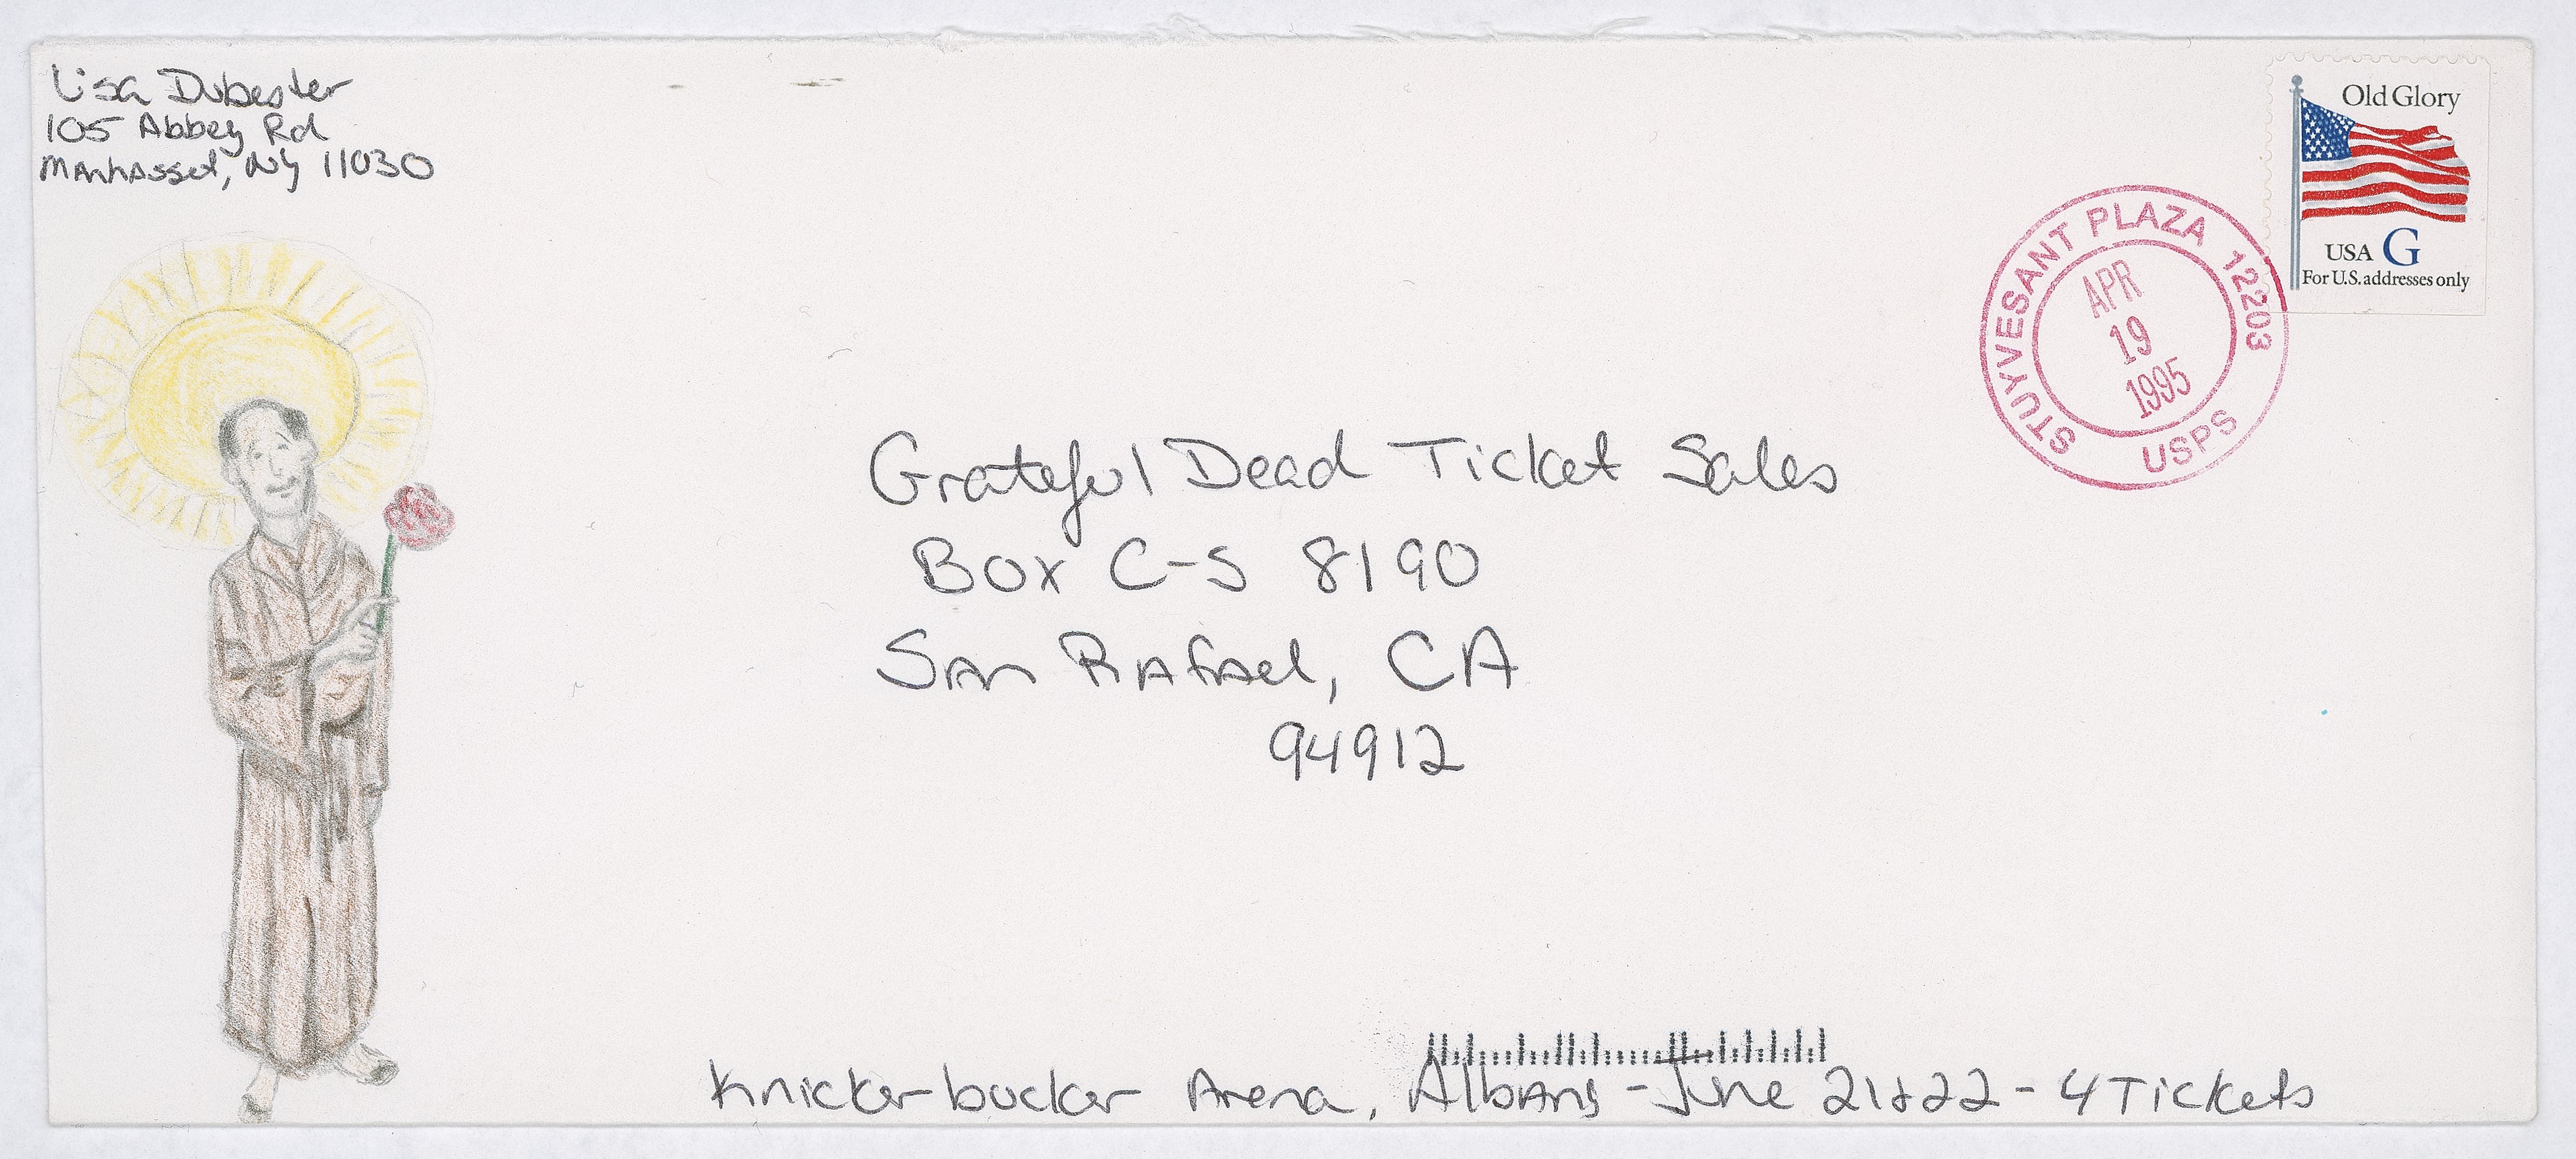 Lisa Dubester
105 Abbey Rd
Manhasset, Ny 11030
Old Glory
USA G
For U.S. addresses only
STUYVESANT PLAZA 12203
APR
19
1995
USPS
Grateful Dead Ticket Sales
Box C-S 8190
San Rafael, CA
94912
Knickerbocker Arena, Albany - June 21&22 - 4 Tickets